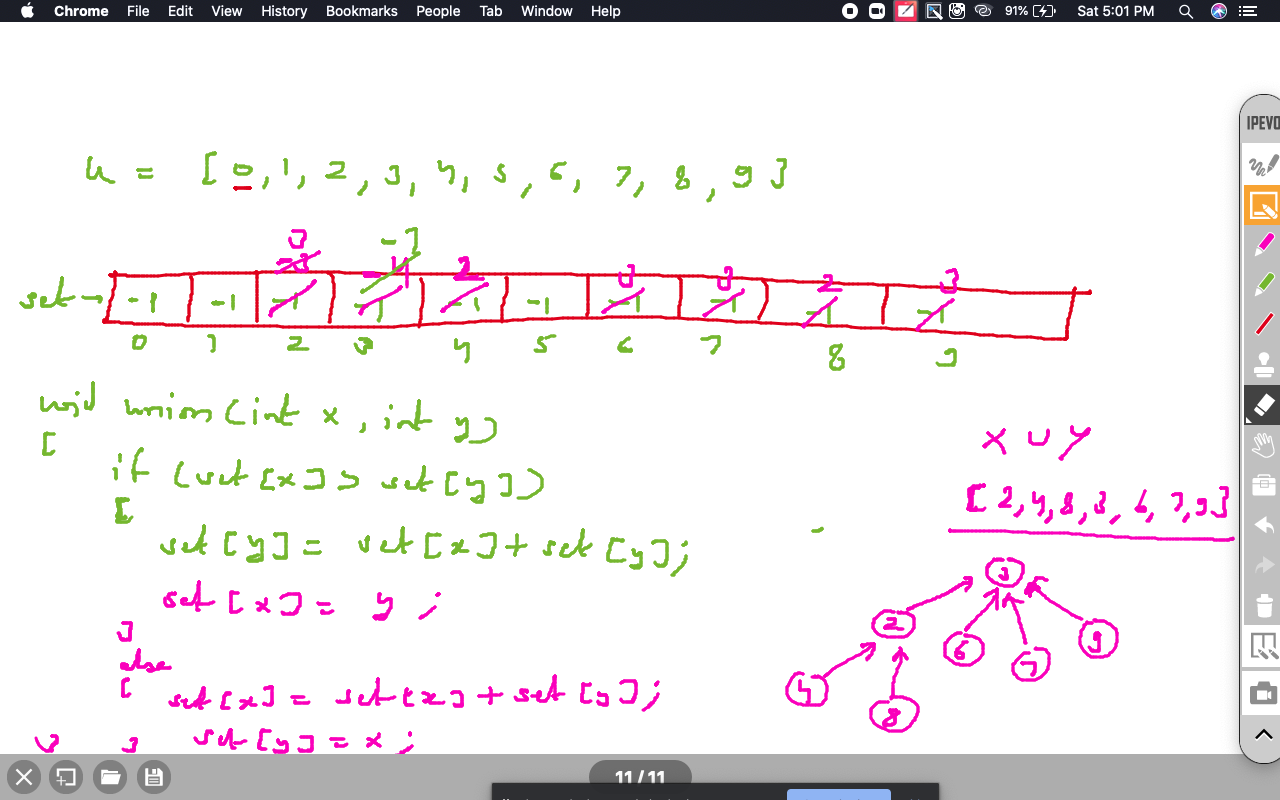 Chrome File Edit View History Bookmarks People Tab Window Help 91% Sat 5:01 PM
IPEVO
u = [ 0, 1, 2, 3, 4, 5, 6, 7, 8, 9 ]
3 -7
-3 -4 2 3 3 2 3
set → -1 -1 -1 -1 -1 -1 -1 -1 -1 -1
0 1 2 3 4 5 6 7 8 9
void union (int x, int y)
[
if (set [x] > set [y])
[
set [y] = set [x] + set [y];
set [x] = y ;
]
else
[ set [x] = set [x] + set [y];
] set [y] = x ;
X U Y
[ 2, 4, 8, 3, 6, 7, 9 ]
3
2 6 7 9
4 8
11 / 11